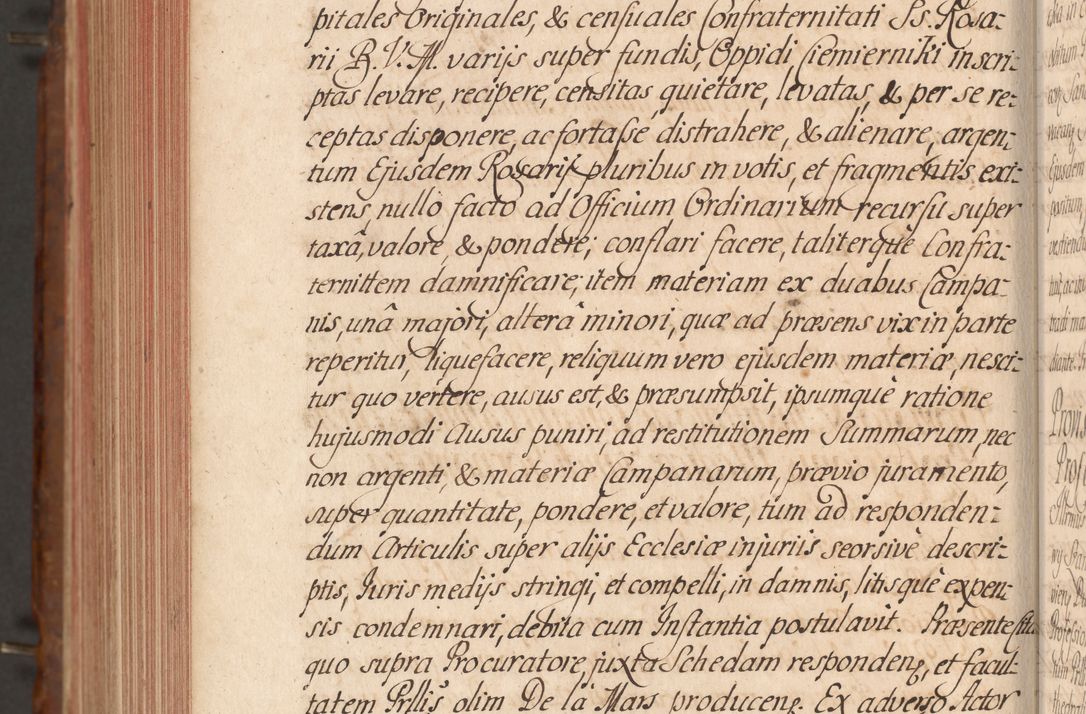 pitales Originales, & censuales Confraternitati Ss. Rosa:
rii B. V. M. varijs super fundis, Oppidi Ciemierniki inscri:
ptas levare, recipere, censitas quietare, levatas, & per se re:
ceptas disponere, ac fortassé distrahere, & alienare, argen:
tum Ejusdem Rosarij pluribus in votis, et fragmentis exi:
stens, nullo facto ad Officium Ordinarium recursu super
taxâ, valore, & pondere; conflari facere, taliterquè Confra:
ternittem damnificare; item materiam ex duabus Campa:
nis, unâ majori, alterâ minori, quæ ad præsens vix in parte
reperitur, liquefacere, reliquum vero ejusdem materiæ, nesci:
tur quo vertere, ausus est, & præsumpsit, ipsumquè ratione
hujusmodi Ausus puniri, ad restitutionem Summarum, nec
non argenti, & materiæ Campanarum, prævio juramento,
super quantitate, pondere, et valore, tum ad responden:
dum Articulis super alijs Ecclesiæ injuriis seorsivè descri:
ptis, Juris medijs stringi, et compelli, in damnis, litisquè expen:
sis condemnari, debita cum Instantia postulavit. Præsente
quo supra Procuratore, juxta Schedam responden, et facul:
tatem Pllis olim De la Mars producen. Ex adverso Actor